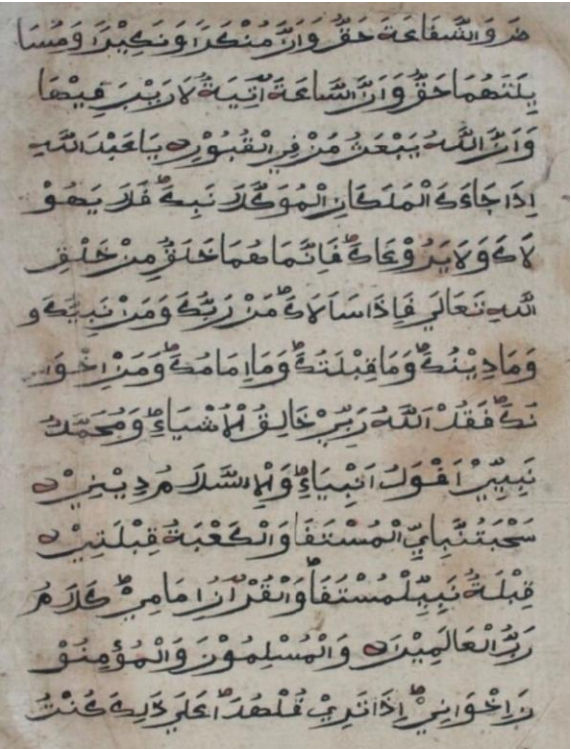 ضَرَ وَالشَّفَاعَةَ حَقٌّ وَاَنَّ مُنْكَرَا وَنَكِيْرَا وَمُسَا
يِلَتَهُمَا حَقٌّ وَاَنَّ السَّاعَةَ اٰتِيَةٌ لَا رَيْبَ فِيْهَا
وَاَنَّ اللّٰهَ يَبْعَثُ مَنْ فِي الْقُبُوْرِ يَا عَبْدَ اللّٰهِ
اِذَا جَاءَكَ الْمَلَكَانِ الْمُوَكَّلَانِ بِكَ فَلَا يَهُوْ
لَاكَ وَلَا يَرُوْعَاكَ فَاِنَّمَا هُمَا خَلَقٌ مِنْ خَلْقِ
اللّٰهِ تَعَالَى فَاِذَا سَاَلَاكَ مَنْ رَبُّكَ وَمَنْ نَبِيُّكَ و
وَمَا دِيْنُكَ وَمَا قِبْلَتُكَ وَمَا اِمَامُكَ وَمَنْ اِخْوَا
نُكَ فَقُلْ اَللّٰهُ رَبِّيْ خَالِقُ الْاَشْيَاءِ وَمُحَمَّدٌ
نَبِيِّيْ اَفْوَلُ اَنْبِيَاءِ وَالْاِسْلَامُ دِيْنِيْ
الْمُسْتَفَا وَالْكَعْبَةُ قِبْلَتِيْ
قِبْلَةُ نَبِيِّلْمُسْتَفَا وَالْقُرْاٰنُ اِمَامِيْ كَلَامُ
رَبُّ الْعَالَمِيْنَ وَالْمُسْلِمُوْنَ وَالْمُؤْمِنُوْ
نَ اِخْوَانِيْ اِذَا تَرِيْ قُلْ هٰذَا عَلَى ذٰلِكَ كُنْتُ